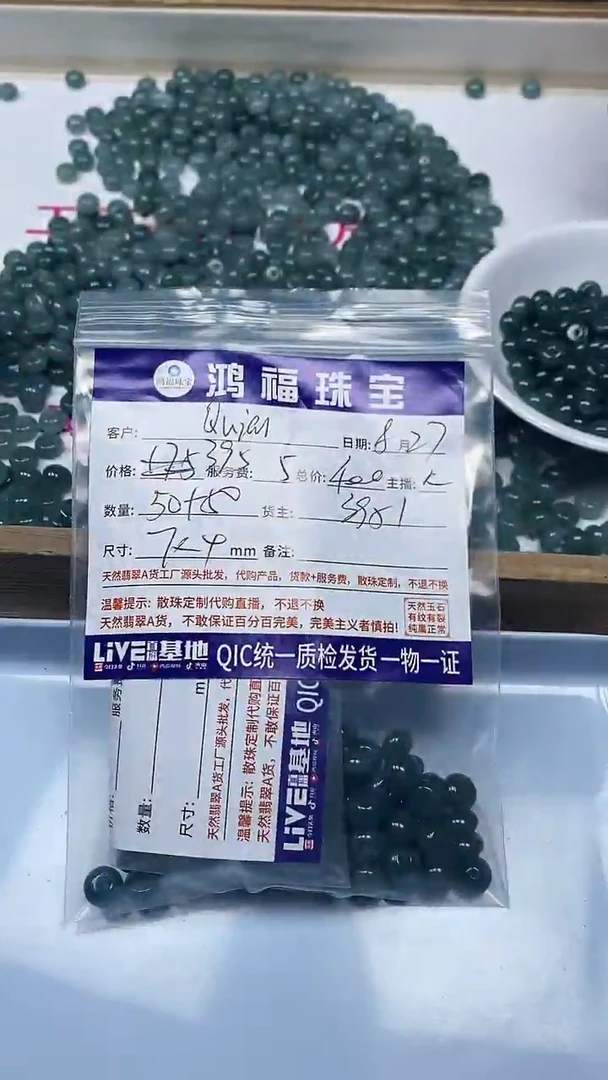 鸿福珠宝
鸿福珠宝
客户: 日期: 8月27
价格: 175 395 服务费: 5 总价: 400 主播:
数量: 50+50 货主:
尺寸: 7x4 mm 备注:
天然翡翠A货工厂源头批发，代购产品，货款+服务费，散珠定制，不退不换
温馨提示：散珠定制代购直播，不退不换
天然翡翠A货，不敢保证百分百完美，完美主义者慎拍!
天然玉石
有纹有裂
纯属正常
LiVE直播基地 QIC统一质检发货一物一证
服务费
数量:
尺寸: m
天然翡翠A货工厂源头批发，代
温馨提示：散珠定制代购直
天然翡翠A货，不敢保证百
LiVE直播基地 QIC